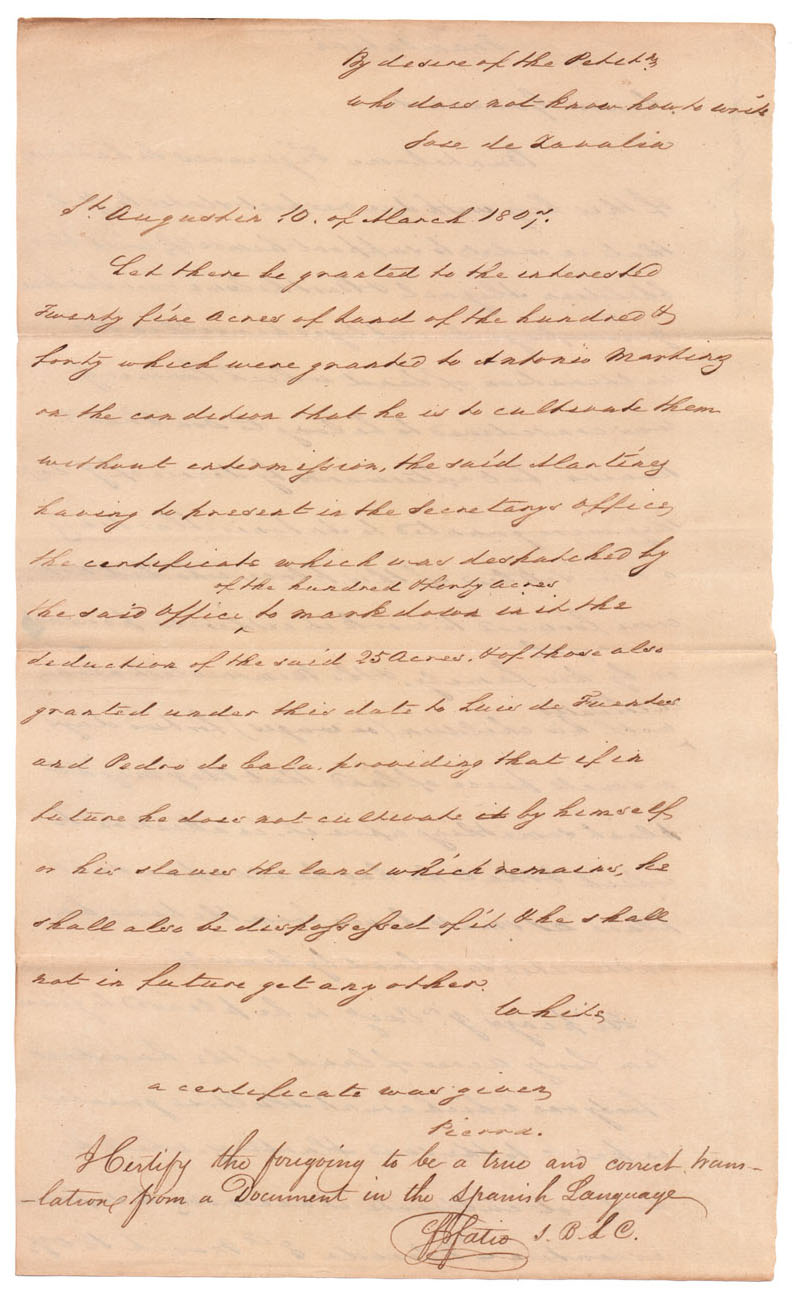 By desire of the Petitr
who does not know how to write
Jose de Zavalia
St. Augustin 10. of March 1807.
Let there be granted to the interested
Twenty five Acres of land of the hundred &
forty which were granted to Antonio Martinez
on the condition that he is to cultivate them
without intermission, the said Martinez
having to present in the Secretarys Office
the certificate which was despatched by
of the hundred & forty acres
the said Office ^ to mark down in it the
deduction of the said 25 Acres, & of those also
granted under this date to Luis de Fuentes
and Pedro de Cala. providing that if in
future he does not cultivate it by himself
or his slaves the land which remains, he
shall also be dispossessed of it & he shall
not in future get any other.
White
a certificate was given
Pierra.
I Certify the foregoing to be a true and correct trans-
-lation from a Document in the Spanish Language
Fatio S. B. L C.